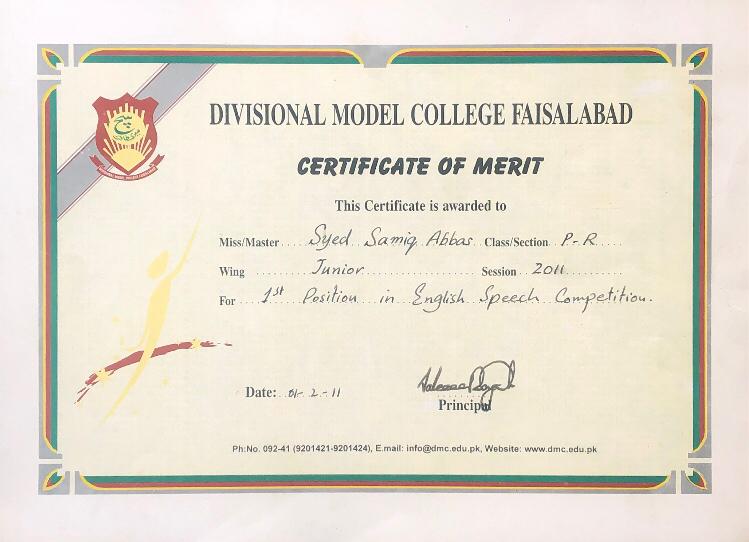 DIVISIONAL MODEL COLLEGE FAISALABAD
CERTIFICATE OF MERIT
This Certificate is awarded to
Miss/Master Syed Samiq Abbas Class/Section P-R
Wing Junior Session 2011
For 1st Position in English Speech Competition.
Date: 01-2-11
Principal
Ph:No. 092-41 (9201421-9201424), E.mail: info@dmc.edu.pk, Website: www.dmc.edu.pk